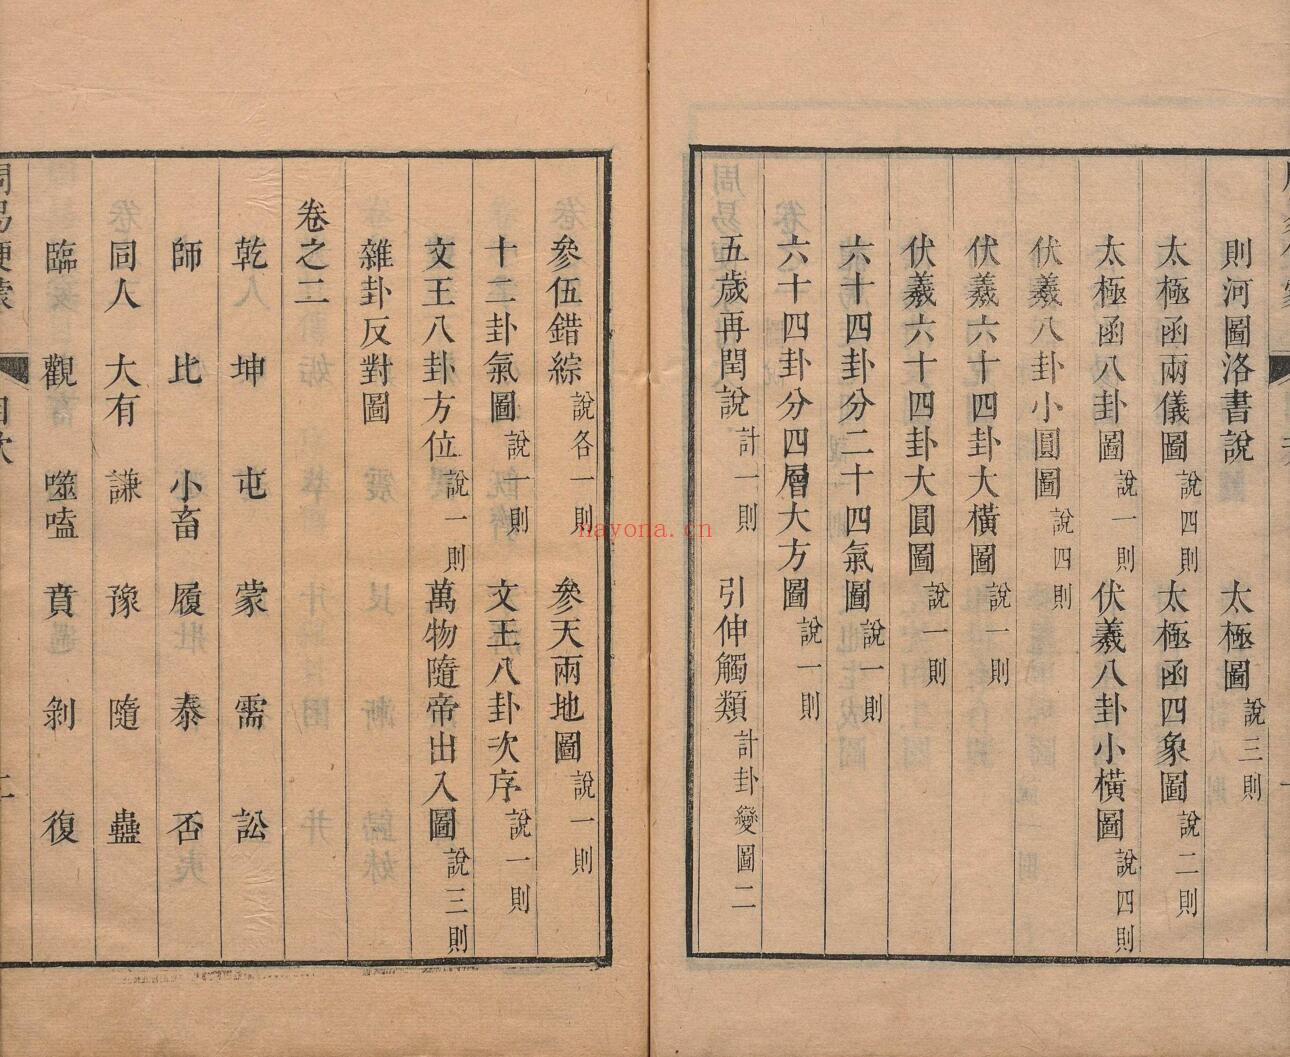 則河圖洛書說 太極圖 說三則
太極函兩儀圖 說四則 太極函四象圖 說二則
太極函八卦圖 說一則 伏羲八卦小橫圖 說四則
伏羲八卦小圓圖 說四則
伏羲六十四卦大橫圖 說一則
伏羲六十四卦大圓圖 說一則
六十四卦分二十四氣圖 說一則
六十四卦分四層大方圖 說一則
五歲再閏說 計一則 引伸觸類 計卦變圖二
參伍錯綜 說各一則 參天兩地圖 說一則
十二卦氣圖 說一則 文王八卦次序 說一則
文王八卦方位 說一則 萬物隨帝出入圖 說三則
雜卦反對圖
卷之二
乾 坤 屯 蒙 需 訟
師 比 小畜 履 泰 否
同人 大有 謙 豫 隨 蠱
臨 觀 噬嗑 賁 剝 復
目次
二
nayona.cn